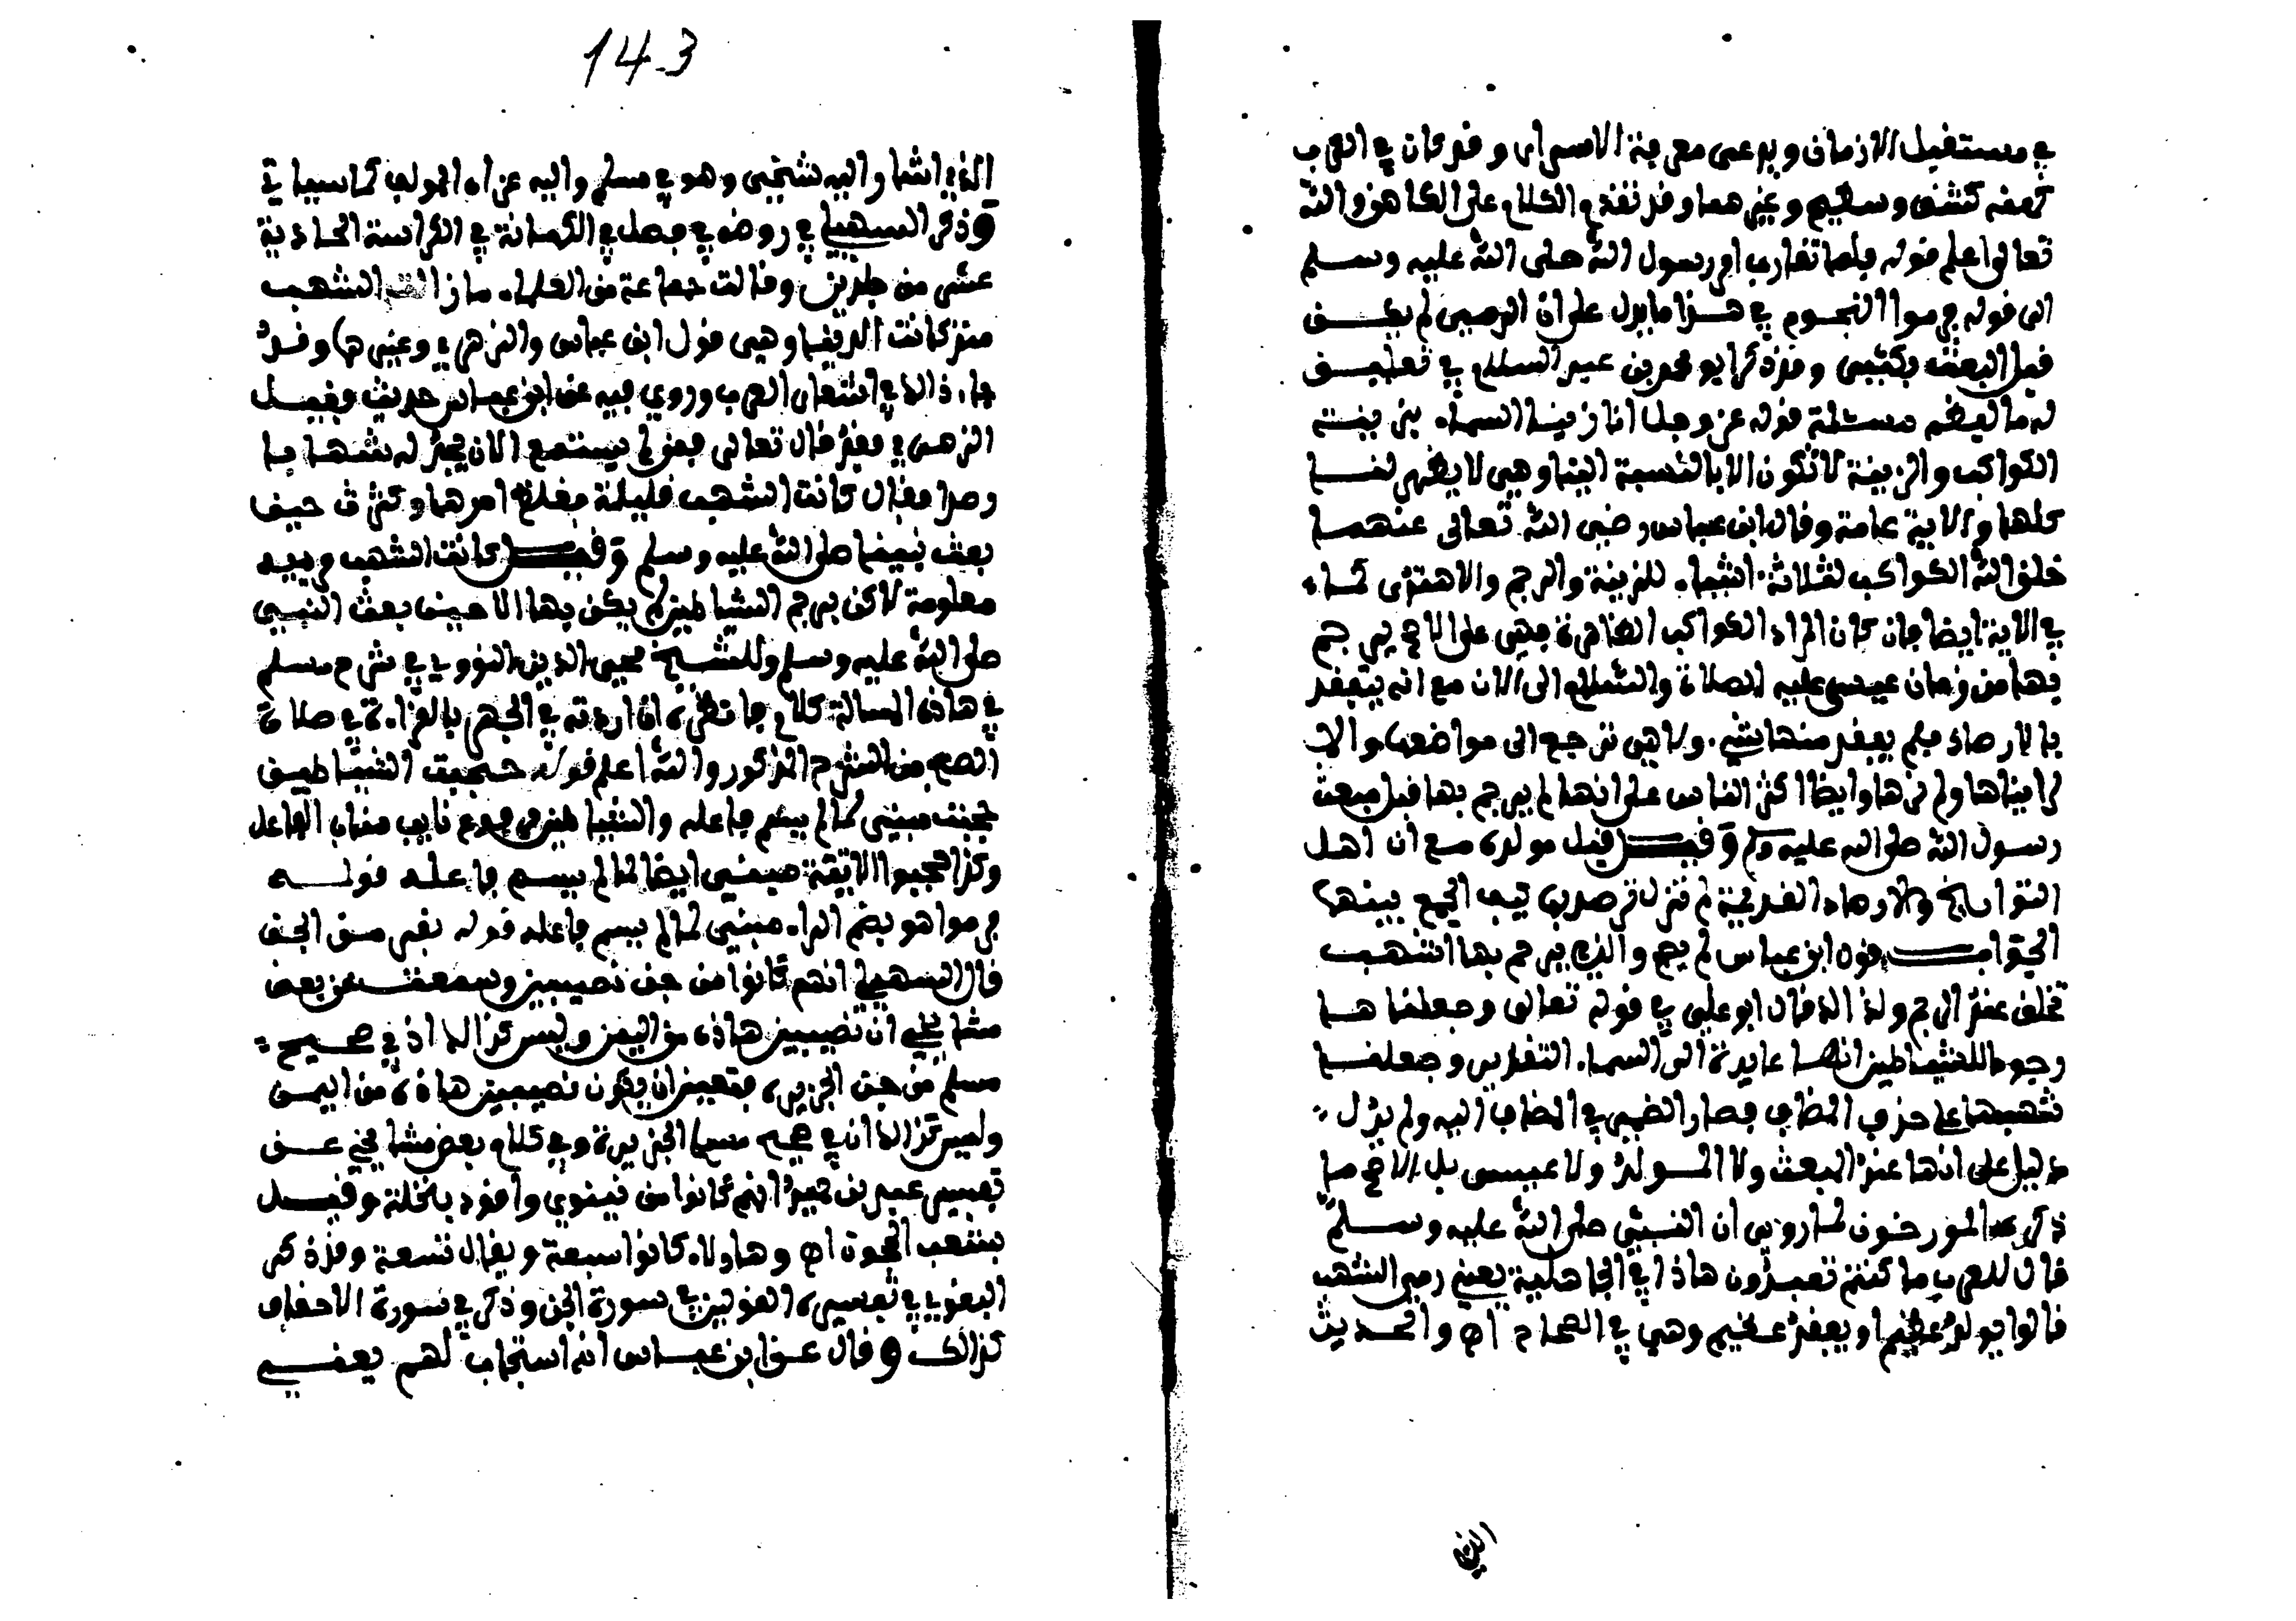 في مستقبل الازمان ويدعى معرفة الاسرار وقد كان في العرب
كهنة كشق وسطيح وغيرهما وقد تقدم الكلام على الكاهن والله
تعالى اعلم قوله فلما تقارب امر رسول الله صلى الله عليه وسلم
الى قوله فرموا بالنجوم في هذا ما يدل على ان الرمي لم يكن
قبل البعث بكثير وقد ذكر ابو محمد بن عبد السلام في تعليق
له ما لفظه مسئلة قوله عز وجل انا زينا السماء بزينة
الكواكب والزينة لا تكون الا بالنسبة الينا وهي لا يظهر لنا
كلها والاية عامة وقال ابن عباس رضي الله تعالى عنهما
خلق الله الكواكب لثلاثة اشياء للزينة والرجم والاهتدى كما
في الاية ايضا فان كان المراد الكواكب الظاهرة فهي على الاصح يرجم
بها من زمان عيسى عليه الصلاة والسلام الى الان مع انه يتفقد
بالارصاد فلم يفقد منها شيء ولا هي ترجع الى مواضعها والا
لرايناها ولم نرها وايضا اكثر الناس على انها لم يرجم بها قبل مبعث
رسول الله صلى الله عليه وسلم وقيل قبل مولده مع ان اهل
التواريخ والارصاد القديمة لم تزل ترصد بها كيف الجمع بينها
الجواب قول ابن عباس لم يصح والذي يرجم بها الشهب
تخلق عند الرجم ولذا الك قال ابو علي في قوله تعالى وجعلناها
رجوما للشياطين انها عايدة الى السماء التقدير وجعلنا
شهبها على حذف المضاف فصار الضمير في المضاف اليه ولم يدل
دليل على انها عند البعث ولا المولد ولا عيسى بل الاصح ما
ذكره المورخون لما روي ان النبي صلى الله عليه وسلم
قال للعرب ما كنتم تعدون هاذا في الجاهلية يعني رمي الشهب
قالوا يولد عظيم او يفقد عظيم وهي في الصحاح اه والحديث
143
الذي اشار اليه شيخي وهو في مسلم واليه عزاه المولف كما سياتي
وذكر السهيلي في روضه في فصل في الكهانة في الكراسة الحادية
عشر من جلدين وقالت جماعة من العلماء ما زالت الشهب
منذ كانت الدنيا وهي قول ابن عباس والزهري وغيرها وقد
جاء ذالك في اشعار العرب وروي فيه عن ابن عباس حديث وقيل
الزهري فقد قال تعالى فمن يستمع الان يجد له شهابا
رصدا فقال كانت الشهب قليلة فغلظ امرها وكثرت حين
بعث نبينا صلى الله عليه وسلم وقيل كانت الشهب مرييه
معلومة لاكن يرجم الشياطين لم يكن بها الا حين بعث النبي
صلى الله عليه وسلم وللشيخ محيي الدين النووي في شرح مسلم
في هاذه المسالة كلام فانظره ان اردته في الجهر بالقراءة في صلاة
الصبح من الشرح المذكور والله اعلم قوله حجبت الشياطين
حجبت مبني لما لم يسم فاعله والشياطين مرفوع نايب مناب الفاعل
وكذا حجبوا الاتية مبني ايضا لما لم يسم فاعله قوله
فرموا هو بضم الراء مبني لما لم يسم فاعله قوله نفر من الجن
قال السهيلي انهم كانوا من جن نصيبين وسمعت عن بعض
مشايخي ان نصيبين هاذه من اليمن وليس كذالك اذ في صحيح
مسلم من جن الجزيرة فتعين ان يكون نصيبين هاذه من اليمن
وليس كذالك ان في صحيح مسلم الجزيرة وفي كلام بعض مشايخي عن
تفسير عبد بن حميد انهم كانوا من نينوي وافوه بنخلة وقيل
بشعب الحجون اه وهاولاء كانوا سبعة ويقال تسعة وقد ذكر
البغوي في تفسيره القولين في سورة الجن وذكر في سورة الاحقاف
كذالك وقال عن ابن عباس انه استجاب لهم يعني